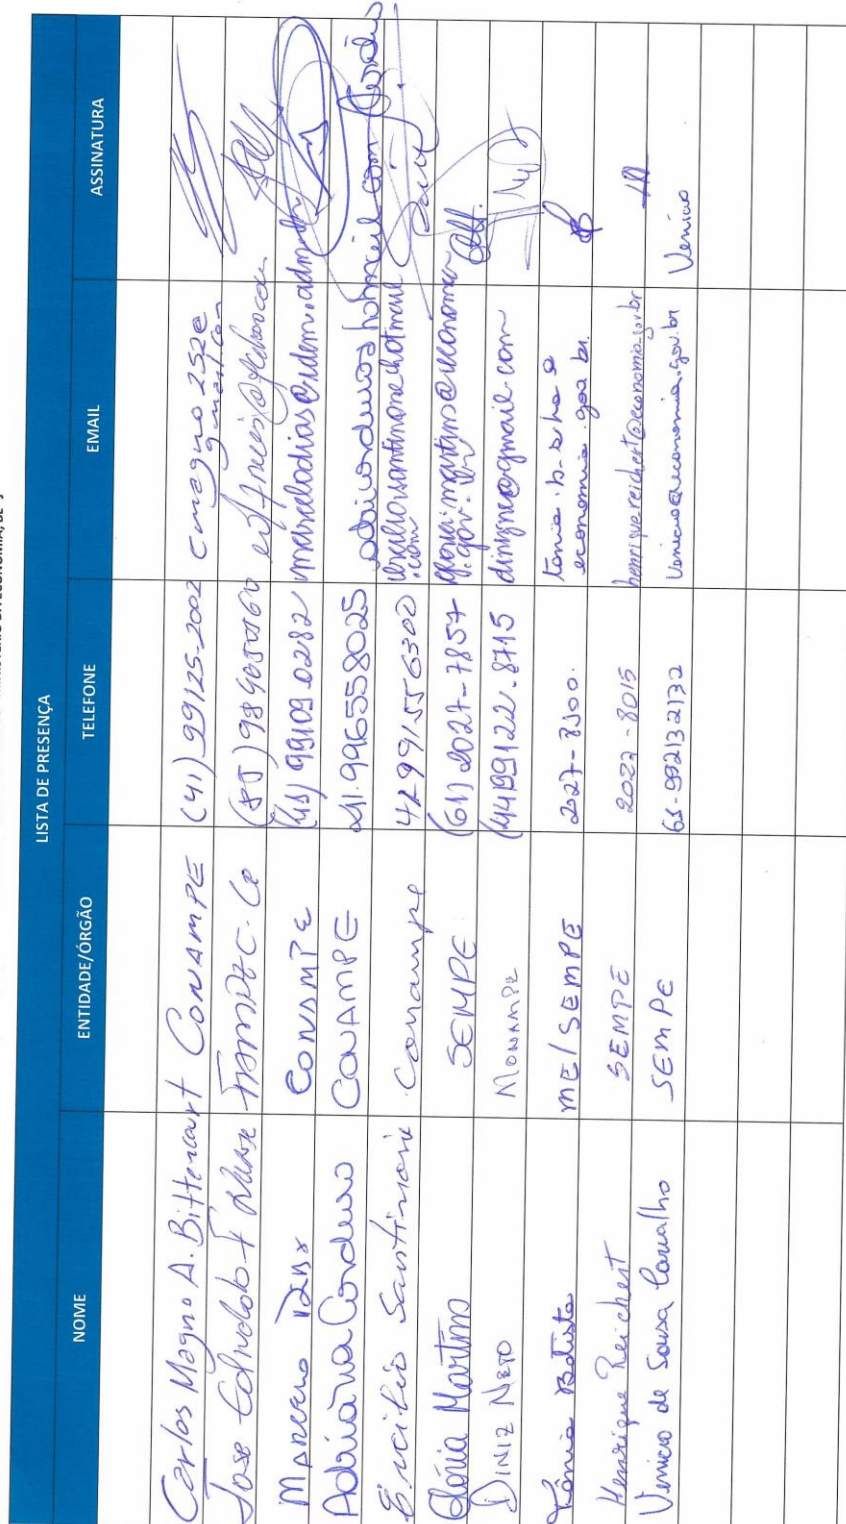 LISTA DE PRESENÇA
NOME ENTIDADE/ÓRGÃO TELEFONE EMAIL ASSINATURA
Carlos Magno A. Bittencourt CONAMPE (41) 99125-2002 cmagno252@gmail.com
Jose
CONAMPE (41) 99109.0282 marcelodias@
Adriana Cordeiro CONAMPE 41.996558025
Ercílio Santinoni Conampe 42991556300 erciliosantinoni@hotmail.com
Glória Martins SEMPE (61) 2027-7857 gloria.martins@economia.gov.br
DINIZ NETO (44)99122.8715 dinizneto@gmail.com
Tânia Batista ME/SEMPE 2027-8300.
economia.gov.br
Henrique Reichert SEMPE 2027-8015 henrique.reichert@economia.gov.br
Venicio de Sousa Carvalho SEMPE 61-992132172 Venicio@economia.gov.br Venicio